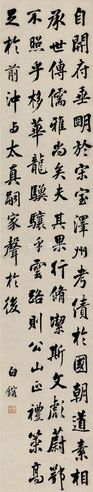 自開府垂明於宋室澤州考績於國朝道素相
承世傳儒雅尚矣夫其果行脩潔斯文彪蔚鄂
不照乎棣華龍驥驤乎雲路則公山正禮策高
足於前沖与太真嗣家聲於後
白鎔